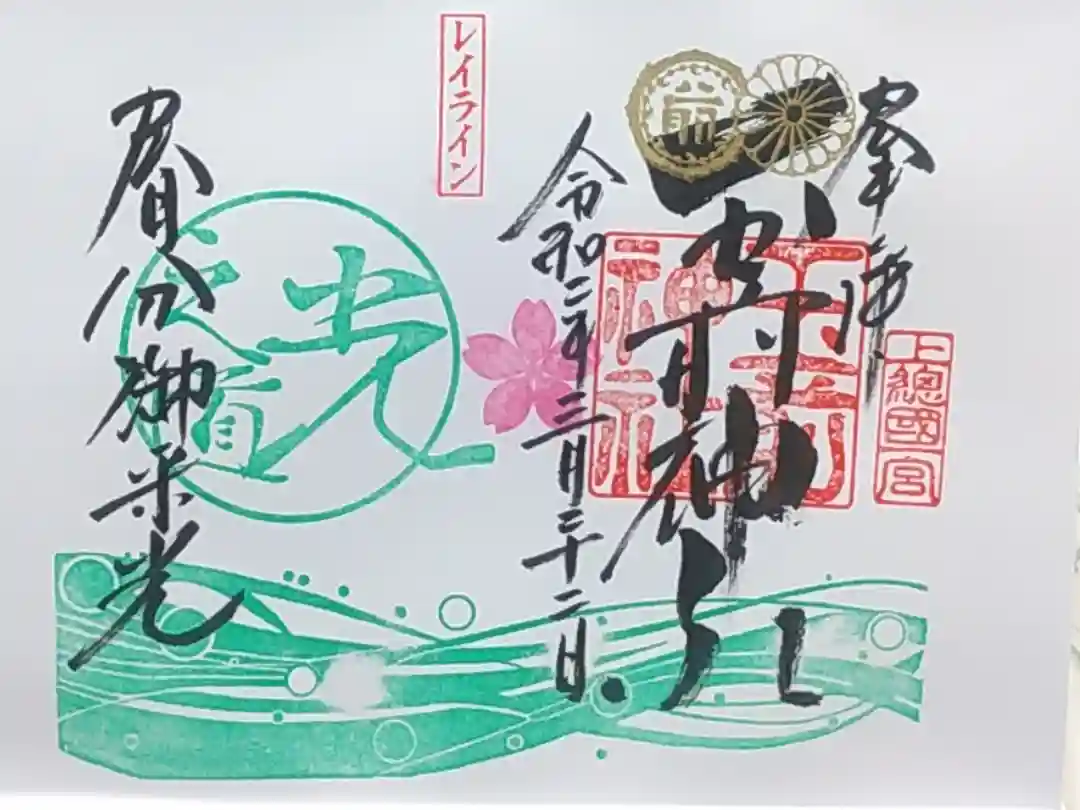 奉拝
上總國一宮
玉前神社
玉前神社
令和二年三月二十二日
レイライン
光
之道
春分御来光